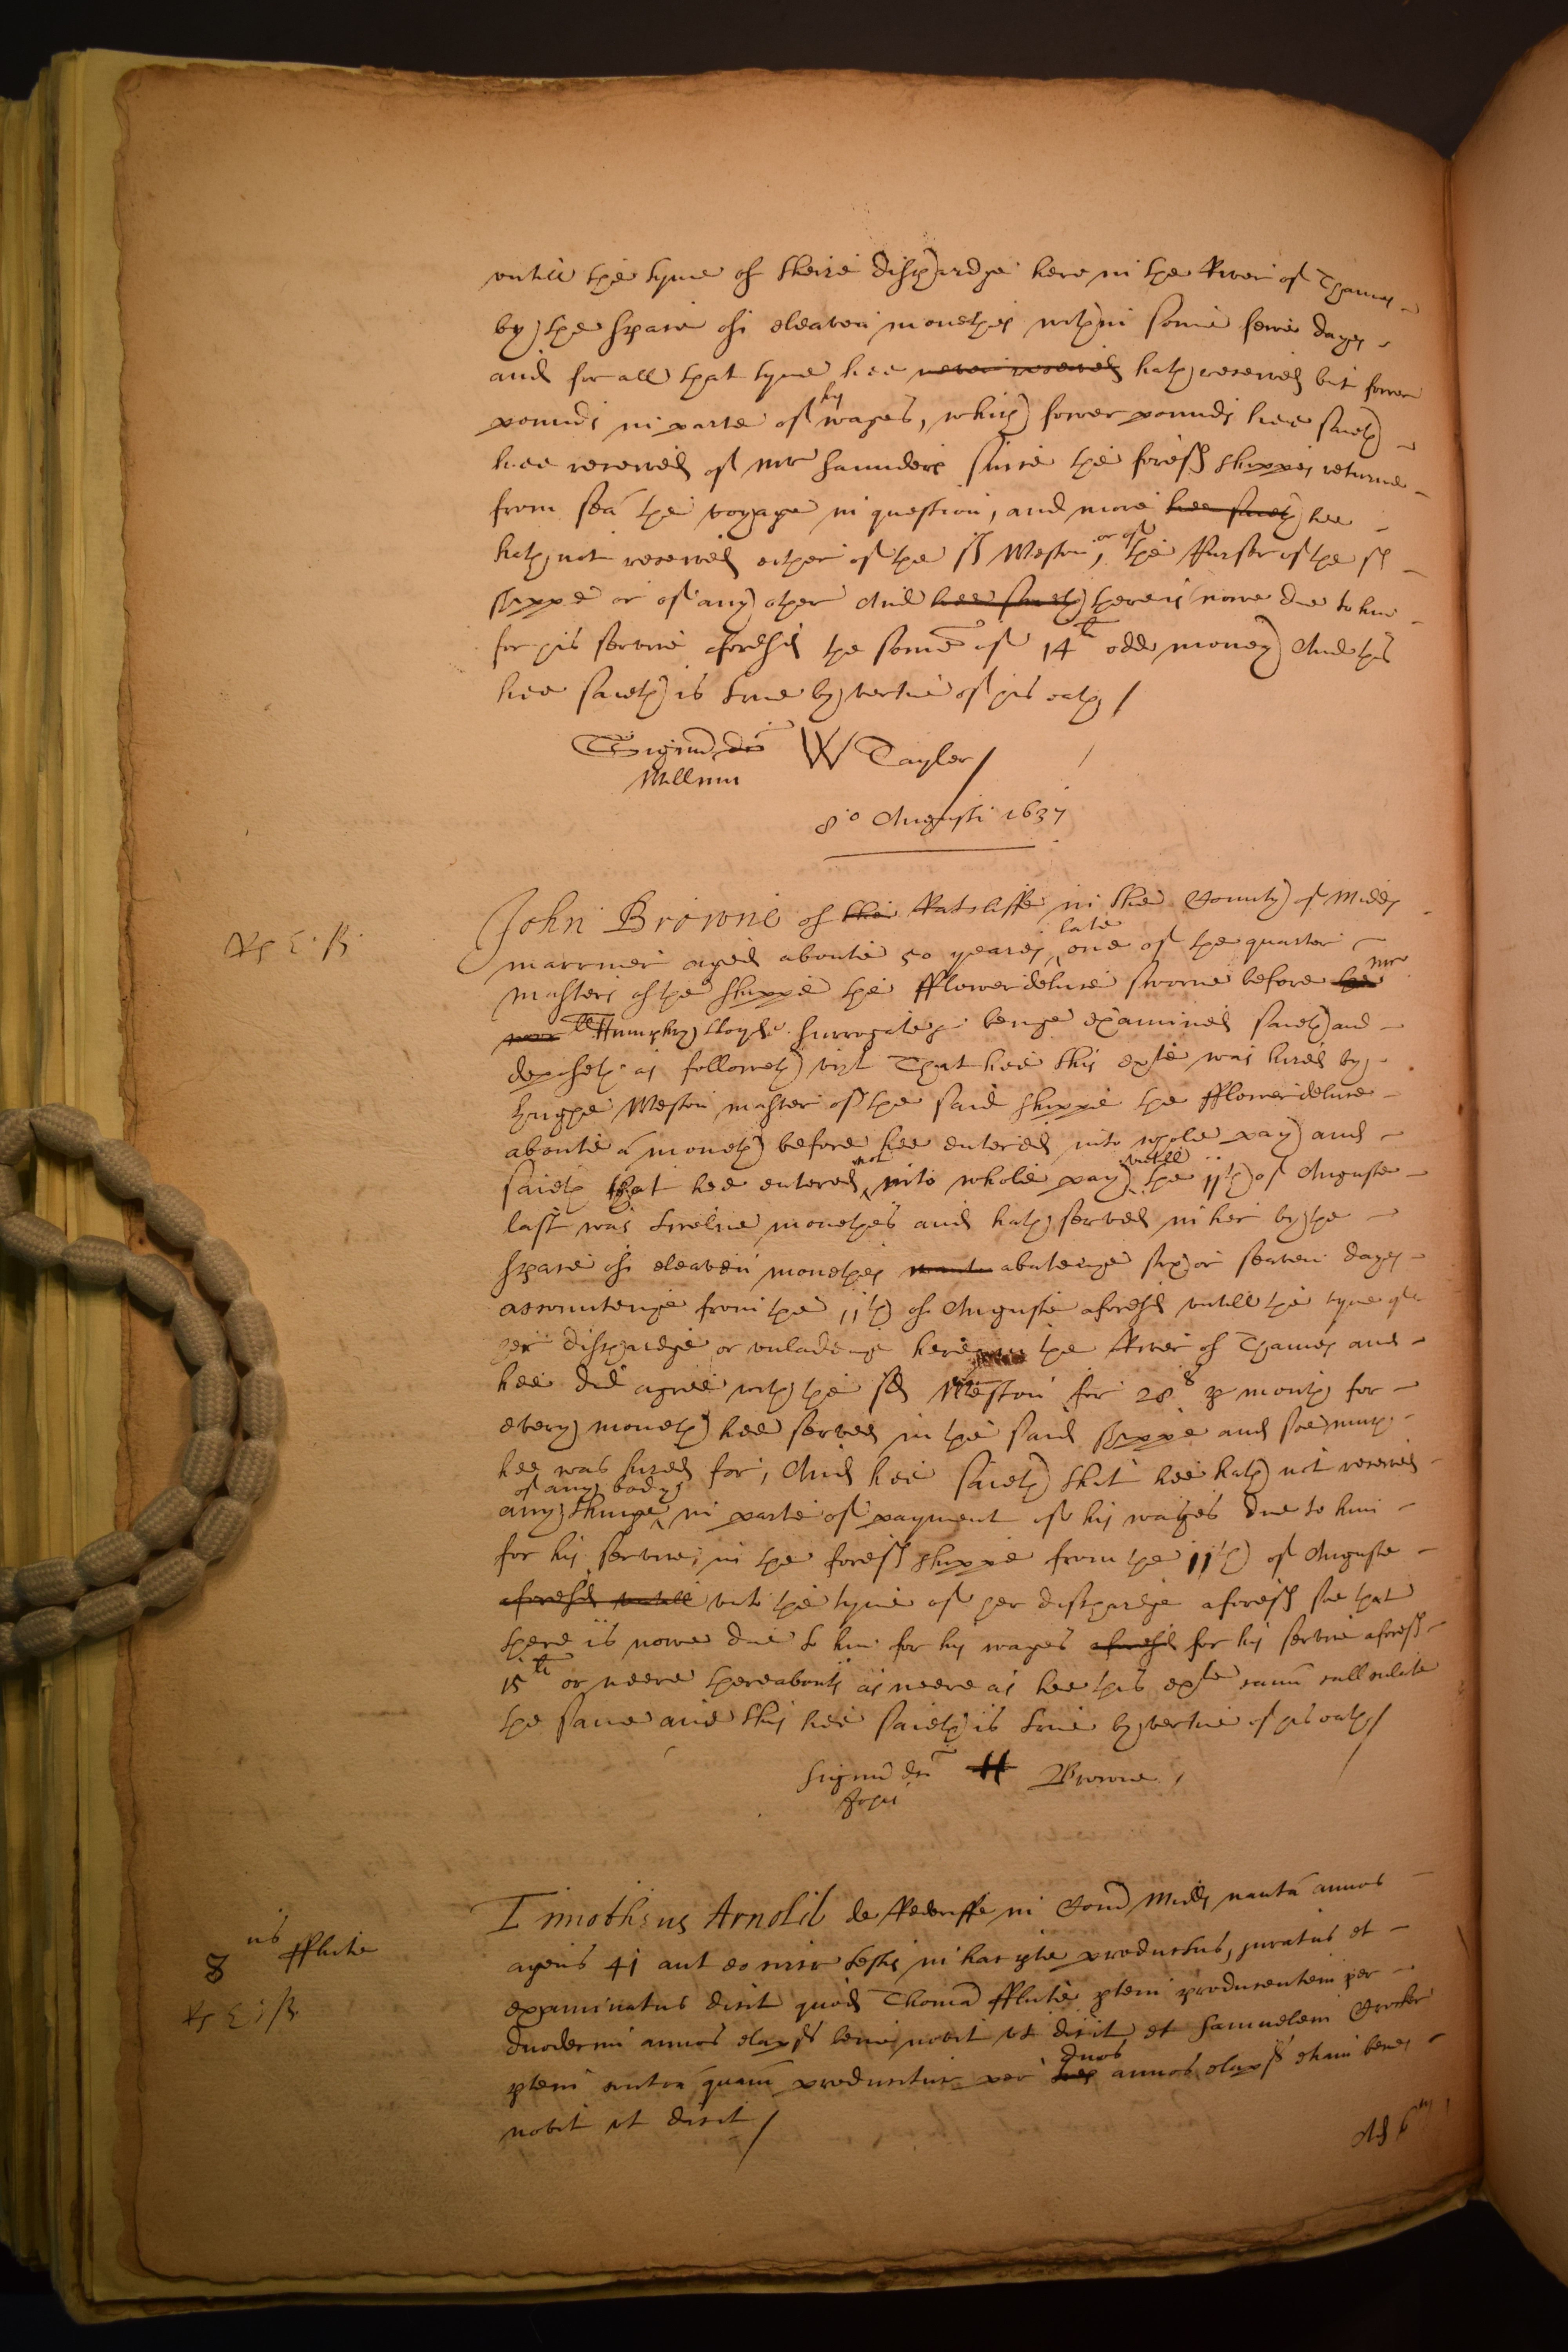 untill the tyme of theire dischardge here in the River of Thames
by the space of eleaven monethes within some fewe dayes
and for all that tyme hee never receaved hath receaved but fower
pounds in parte of his wages, which fower pounds hee saieth
hee receved of mr Saunders since the foresd shippes returne
from sea the voyage in question, and more hee saieth hee
hath not receved either of the sd Weston, or of the Purser of the sd
shippe or of any other And hee saieth there is nowe due to him
for his service aforesd the some of 14li odd money And this
hee saieth is true by vertue of his oath /
Signum dci W Tayler /
Willmi
8o Augusti 1637
John Browne of the Ratcliffe in the County of Midds
marriner aged aboute 50 yeares late one of the quarter
Rp E. B.
masters of the shippe the fflowerdeluce sworne before the mr
Humphry lloyde Surrogate beinge examined saieth and
deposeth as followeth vizt That hee this exte was hired by
Hughe Weston master of the said shippe the fflowerdeluce
aboute a moneth before hee entered into whole pay and
saieth that hee entered not into whole pay untill the 11th of Auguste
last was twelve monethes and hath served in her by the
space of eleaven monethes abateinge six or seaven dayes
accomptinge from the 11th of Auguste aforesd untill the tyme of
her dischardge or unladeinge here the River of Thames and
hee did agree with the sd Weston for 28s p month for
every moneth hee served in the said shippe and soe much
hee was hired for, And hee saieth that hee hath not receved
any thinge of any body in parte of payment of his wages due to him
for his service in the foresd shippe from the 11th of Auguste
aforesd untill unto the tyme of her dischardge aforesd soe that
there is nowe due to him for his wages aforesd for his service aforesd
15li or neere thereabouts as neere as hee this exte cann callculate
the same and this hee saieth is true by vertue of his oath /
Signum dci H Browne /
Johis
Timotheus Arnold de Redriffe in Com Midds nauta annos
8us fflute
agens 41 aut eo circiter testis in hac pte productus, juratus et
Rp E. B.
examinatus dicit quod Thoma fflute ptem producentem per
duodecim annos elapss bene novit ut dicit et Samuelem Crocker
ptem contra quam producitur per sex duos annos elapss etiam bene
novit ut dicit /
Ad 6m